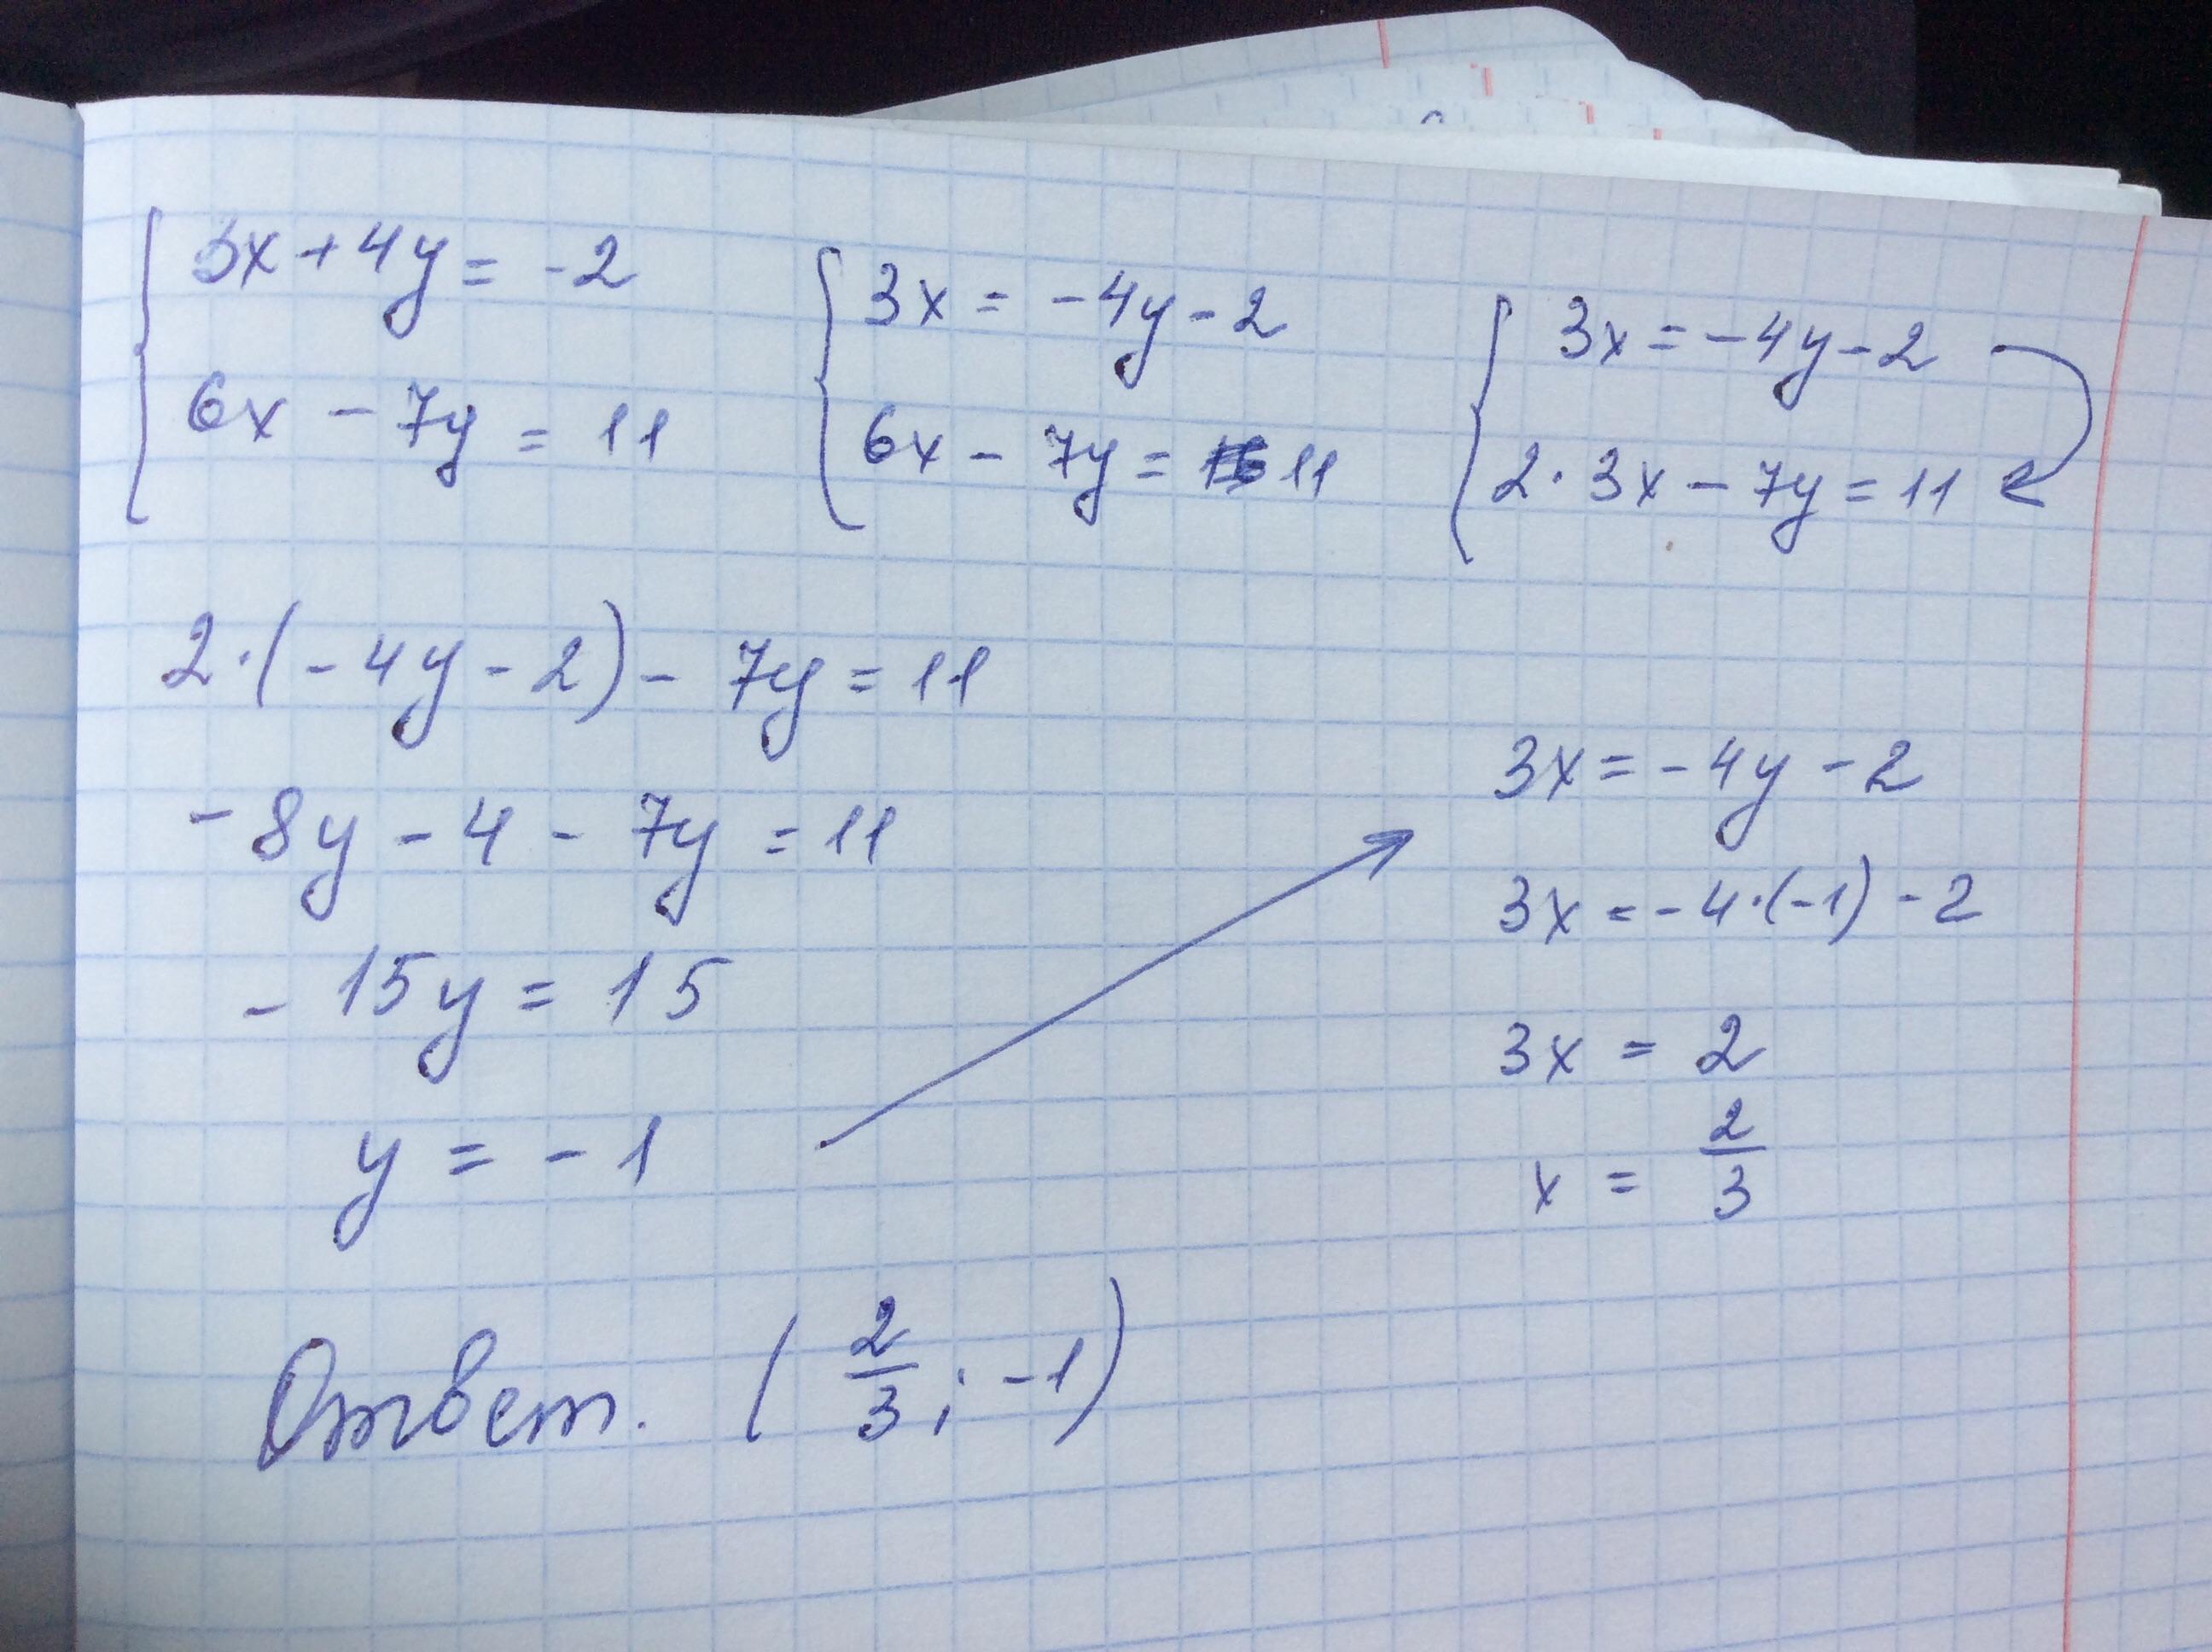 3x + 4y = -2
6x - 7y = 11
3x = -4y - 2
6x - 7y = 11
3x = -4y - 2
2 · 3x - 7y = 11
2 · (-4y - 2) - 7y = 11
-8y - 4 - 7y = 11
-15y = 15
y = -1
3x = -4y - 2
3x = -4 · (-1) - 2
3x = 2
x = 2/3
Ответ. (2/3; -1)